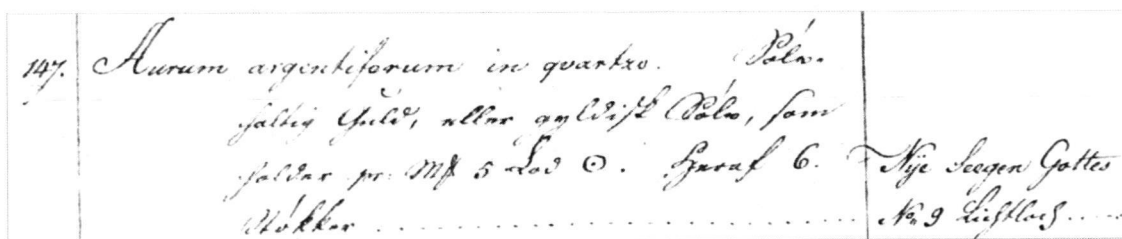 147. Aurum argentiferum in qvartzo. Sølv-
haltig Guld, eller gyldisk Sølv, som
holder pr: Mk 5 Lod ☉. Heraf 6. Nye Seegen Gottes
Støkker .................... No 9 Lichtloch ....